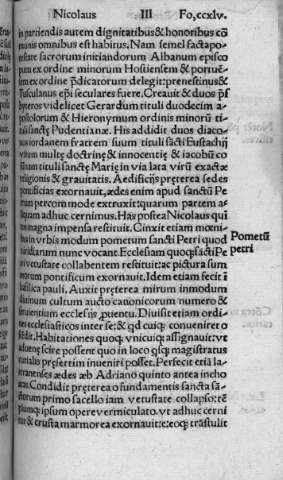 Nicolaus III Fo,ccxlv.
in partiendis autem dignitatibus & honoribus cō
munis omnibus est habitus. Nam semel factapo-
testate sacrorum initiandorum Albanum episco
pum ex ordine minorum Hostiensem & portuē-
sem ex ordine p̄dicatorum delegit: prenestinus &
Tusculanus ep̄i seculares fuere. Creauit & duos p̄s
byteros videlicet Gerardum tituli duodecim a-
postolorum & Hieronymum ordinis minorū ti-
tuli sanctę Pudentianæ. His addidit duos diaco-
nos iordanem fratrem suum tituli sācti Eustachij
virum multę doctrinę & innocentię & iacobū co
lumnam tituli sanctę Marię in via lata virū exactæ
religionis & grauitatis. Aedificijs pręterea sedes
pontificias exornauit, ædes enim apud sanctū Pe
trum percommode extruxit: quarum partem a-
liquam adhuc cernimus. Has postea Nicolaus quī
tus magna impensa restituit. Cinxit etiam mœni-
bus in vrbis modum pometum sancti Petri quod
viridarium nunc vocant. Ecclesiam quoq; sācti Pe
tri vetustate collabentem restituit: ac pictura sum
morum pontificum exornauit. Idem etiam fecit ī
basilica pauli. Auxit pręterea mirum inmodum
diuinum cultum aucto canonicorum numero &
seruientium ecclesijs, puentu. Diuisit etiam ordi-
nes ecclesiasticos inter se: & qd cuiq; conueniret o
stēdit. Habitationes quoq; vnicuiq; assignauit: vt
aduenę scire possent quo in loco q̄sq; magistratus
curialis pręsertim inueniri posset. Perfecit etiā la-
teranenses ædes ab Adriano quinto antea incho
atas. Condidit pręterea o fundamentis sancta sā-
ctorum primo sacello iam vetustate collapso: tē
plumq; ipsum opere vermiculato, vt adhuc cerni
tur & crusta marmorea exornauit: eoq; trāstulit
Pometū
petri